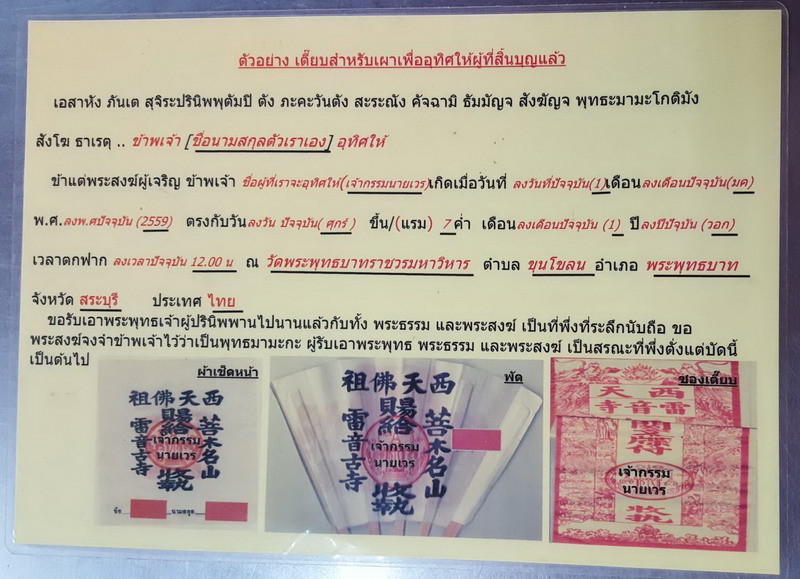 ตัวอย่าง เตี๊ยบสำหรับเผาเพื่ออุทิศให้ผู้ที่สิ้นบุญแล้ว
เอสาหัง ภันเต สุจิระปรินิพพุตัมปิ ตัง ภะคะวันตัง สะระณัง คัจฉามิ ธัมมัญจ สังฆัญจ พุทธะมามะโกติมัง
สังโฆ ธาเรตุ .. ข้าพเจ้า [ชื่อนามสกุลตัวเราเอง] อุทิศให้
ข้าแต่พระสงฆ์ผู้เจริญ ข้าพเจ้า ชื่อผู้ที่เราจะอุทิศให้(เจ้ากรรมนายเวร)เกิดเมื่อวันที่ ลงวันที่ปัจจุบัน(1)เดือนลงเดือนปัจจุบัน(มค)
พ.ศ.ลงพ.ศปัจจุบัน (2559) ตรงกับวันลงวัน ปัจจุบัน( ศุกร์ ) ขึ้น/(แรม) 7 ค่ำ เดือนลงเดือนปัจจุบัน (1) ปีลงปีปัจจุบัน (วอก)
เวลาตกฟาก ลงเวลาปัจจุบัน 12.00 น ณ วัดพระพุทธบาทราชวรมหาวิหาร ตำบล ขุนโขลน อำเภอ พระพุทธบาท
จังหวัด สระบุรี ประเทศ ไทย
ขอรับเอาพระพุทธเจ้าผู้ปรินิพพานไปนานแล้วกับทั้ง พระธรรม และพระสงฆ์ เป็นที่พึ่งที่ระลึกนับถือ ขอ
พระสงฆ์จงจำข้าพเจ้าไว้ว่าเป็นพุทธมามะกะ ผู้รับเอาพระพุทธ พระธรรม และพระสงฆ์ เป็นสรณะที่พึ่งตั้งแต่บัดนี้
เป็นต้นไป
ผ้าเช็ดหน้า
祖佛天西
賜給
菩木名山
雷音古寺
เจ้ากรรม
นายเวร
ชื่อ นามสกุล
พัด
祖佛天西
賜給
菩木名山
雷音古寺
เจ้ากรรม
นายเวร
ซองเตี๊ยบ
天西
寺音雷
เจ้ากรรม
นายเวร